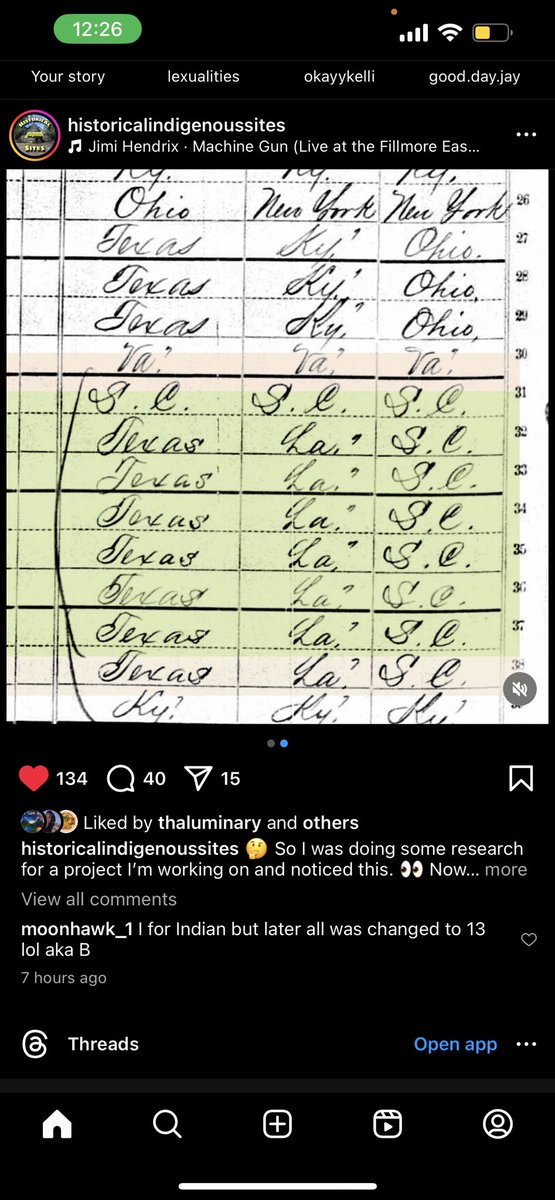 12:26
Your story lexualities okayykelli good.day.jay
historicalindigenoussites
Jimi Hendrix · Machine Gun (Live at the Fillmore Eas...
Ky. Ky. Ky.
Ohio New York New York 26
Texas Ky. Ohio. 27
Texas Ky. Ohio, 28
Texas Ky. Ohio, 29
Va. Va. Va. 30
S. C. S. C. S. C. 31
Texas La. S. C. 32
Texas La. S. C. 33
Texas La. S. C. 34
Texas La. S. C. 35
Texas La. S. C. 36
Texas La. S. C. 37
Texas La. S. C. 38
Ky. Ky. Ky.
134 40 15
Liked by thaluminary and others
historicalindigenoussites 🤔 So I was doing some research
for a project I'm working on and noticed this. 👀 Now... more
View all comments
moonhawk_1 I for Indian but later all was changed to 13
lol aka B
7 hours ago
Threads Open app